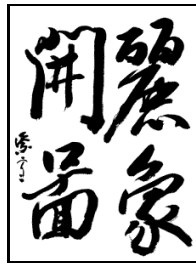 麗象
開圖